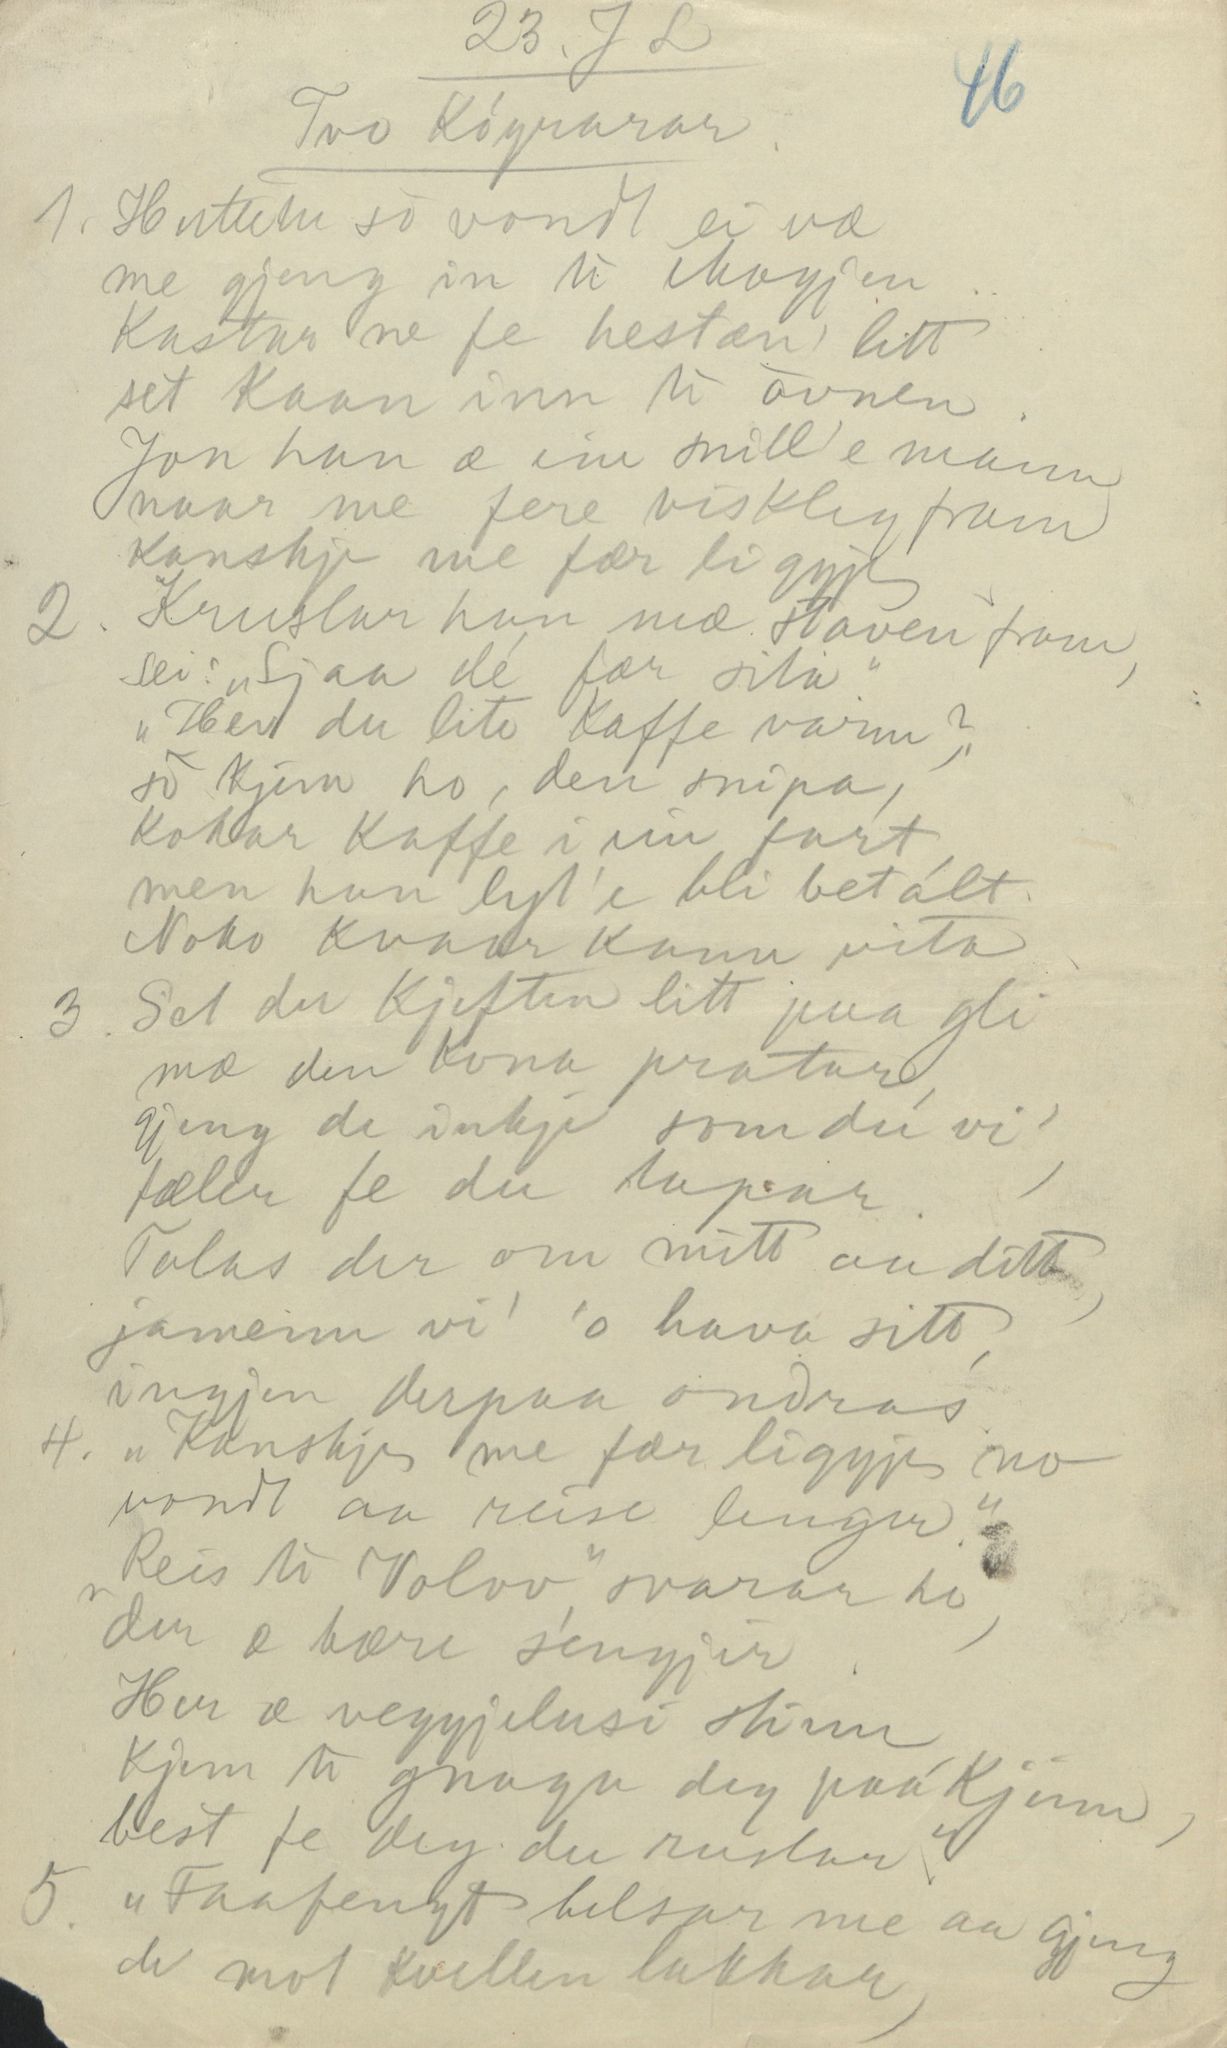 23. J L
46
Tvo Kógrarar.
1. Huttetu sò vondt ei væ
me gjeng in ti skogjen
Kastar ne fe hestæn' litt
set Kaan inn ti òvnen.
Jon han æ ein snill'e mann
naar me fere viskleg fram
kanskje me fær liggje
2. Kruslar han mæ staven fram,
sei: "Sjaa dé fær sita"
"Her du lite Kaffe varm?"
sò kjem ho, den snipa,
Kokar Kaffe i ein fart
men han lyt'e bli betált.
Noko kvaar kann vita
3. Set du Kjeften litt paa gli
mæ den kona pratar,
gjeng de inkje som du vi',
fæler fe du tapar.
Talas der om mitt au ditt,
jameinn vi' 'o hava sitt,
ingjen derpaa ondras
4. "Kanskje me fær liggje no
vondt aa reise lenger."
"Reis ti Volov," svarar ho,
der æ bære séngjir.
Her æ veggjelusi stinn
Kjem ti gnaga deg paa Kjinn,
best fe deg du ruslar"
5. "Faafengt helsar me aa gjeng
de mot kvellen lakkar,